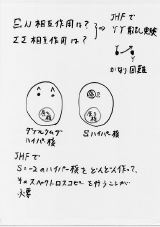 ΞN 相互作用は?
ΣΣ 相互作用は?
⇒ JHFで
YY散乱実験
Y Y
かなり困難
Λ Λ
ダブルラムダ
ハイパー核
Ξ
Sハイパー核
JHFで
S=-2のハイパー核をどんどん作って、
そのスペクトロスコピーを行うことが
必要